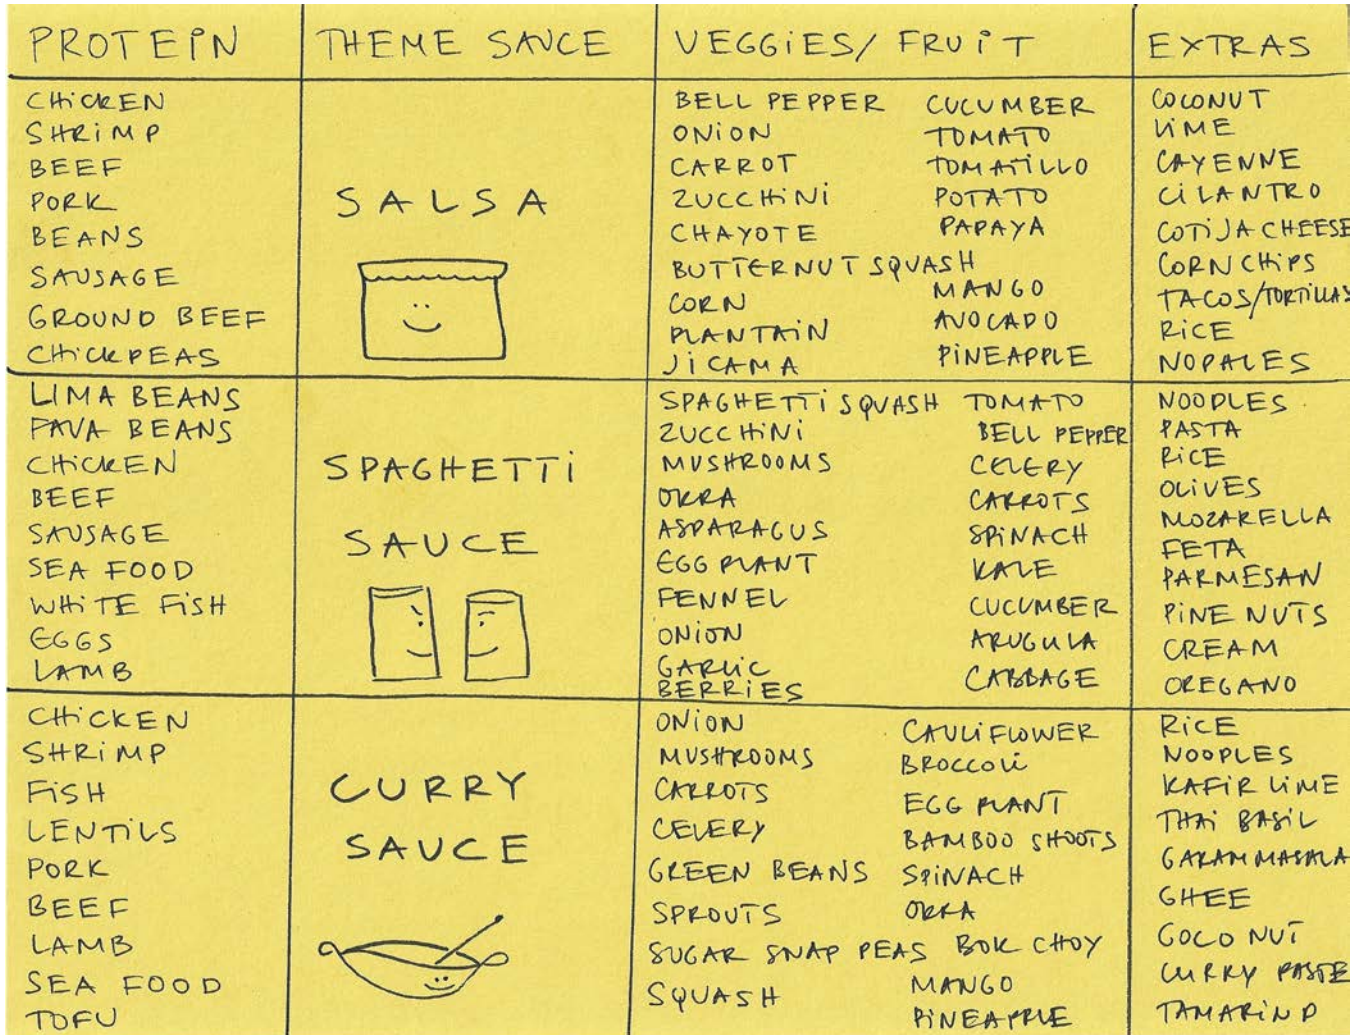 PROTEIN
THEME SAUCE
VEGGIES/ FRUIT
EXTRAS
CHICKEN
SHRIMP
BEEF
PORK
BEANS
SAUSAGE
GROUND BEEF
CHICKPEAS
SALSA
BELL PEPPER
ONION
CARROT
ZUCCHINI
CHAYOTE
BUTTERNUT SQUASH
CORN
PLANTAIN
JICAMA
CUCUMBER
TOMATO
TOMATILLO
POTATO
PAPAYA
MANGO
AVOCADO
PINEAPPLE
COCONUT
LIME
CAYENNE
CILANTRO
COTIJA CHEESE
CORN CHIPS
TACOS/TORTILLAS
RICE
NOPALES
LIMA BEANS
FAVA BEANS
CHICKEN
BEEF
SAUSAGE
SEA FOOD
WHITE FISH
EGGS
LAMB
SPAGHETTI
SAUCE
SPAGHETTI SQUASH
ZUCCHINI
MUSHROOMS
OKRA
ASPARAGUS
EGG PLANT
FENNEL
ONION
GARLIC
BERRIES
TOMATO
BELL PEPPER
CELERY
CARROTS
SPINACH
KALE
CUCUMBER
ARUGULA
CABBAGE
NOODLES
PASTA
RICE
OLIVES
MOZARELLA
FETA
PARMESAN
PINE NUTS
CREAM
OREGANO
CHICKEN
SHRIMP
FISH
LENTILS
PORK
BEEF
LAMB
SEA FOOD
TOFU
CURRY
SAUCE
ONION
MUSHROOMS
CARROTS
CELERY
GREEN BEANS
SPROUTS
SUGAR SNAP PEAS
SQUASH
CAULIFLOWER
BROCCOLI
EGG PLANT
BAMBOO SHOOTS
SPINACH
OKRA
BOK CHOY
MANGO
PINEAPPLE
RICE
NOODLES
KAFIR LIME
THAI BASIL
GARAM MASALA
GHEE
COCONUT
CURRY PASTE
TAMARIND